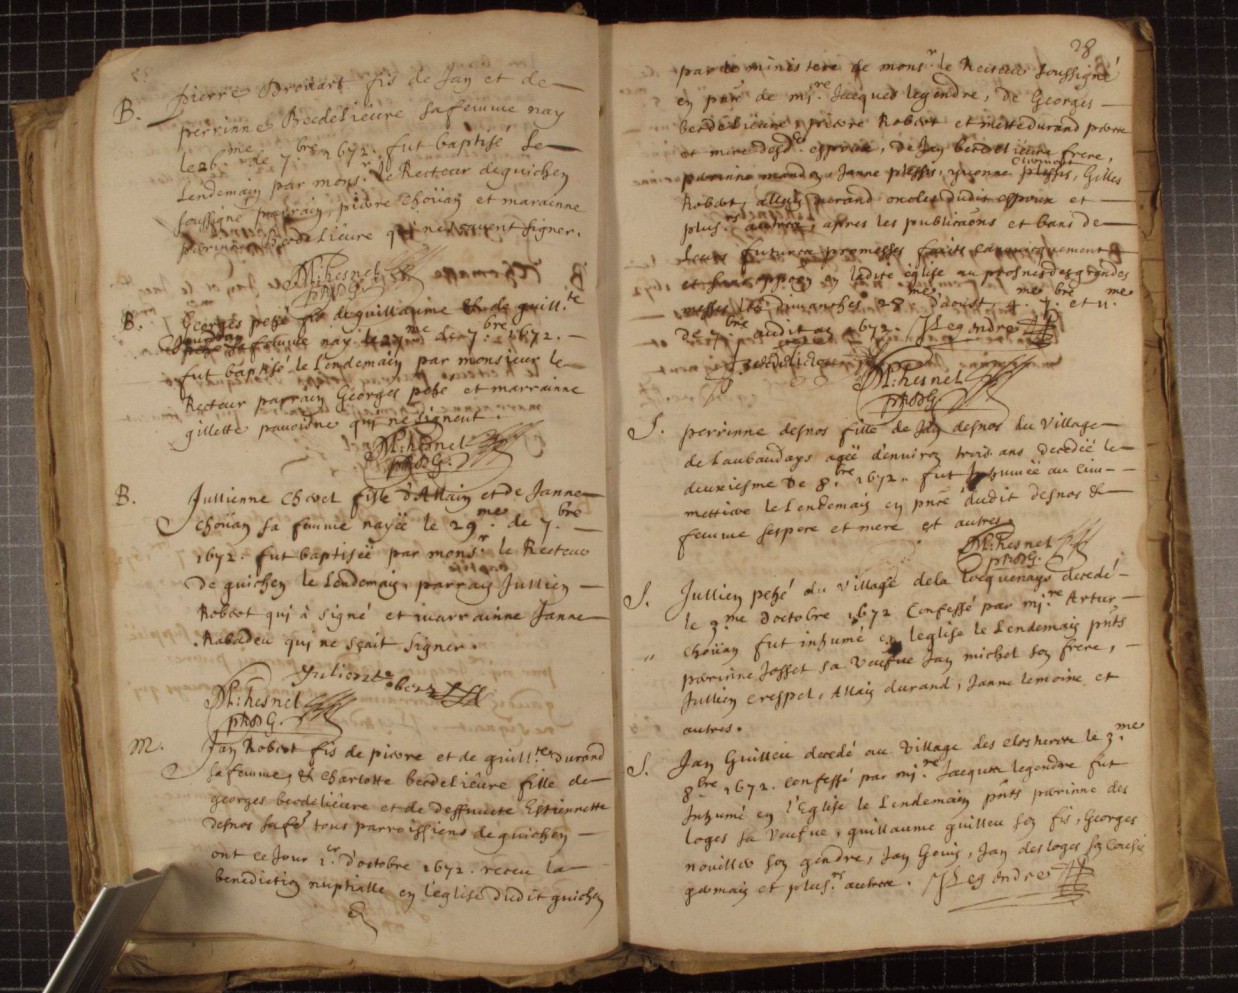 B. Pierre Drouart fis de Jan et de
perrinne Berdelieure sa femme nay
le 26.me de 7.bre 1672. fut baptisé Le
Lendemain par mons.r Le Recteur de guichen
soussigné parrain, pierre choüan et marainne
perrinne Berdelieure qui ne sçauent signer.
M: hesnel
B. Georges pezé fis de guillaume et de guill.te
sa femme nay le 27.me de 7.bre 1672.
fut baptisé le Lendemain par monsieur le
Recteur parrain Georges pezé et marrainne
gillette qui ne signent.
M: hesnel
B. Jullienne chovel fille d'Allain et de Janne
choüan sa femme nayëe le 29.me de 7.bre
1672. fut baptiseë par mons.r le Recteur
de guichen le Lendemain parrain Jullien
Robert qui à signé et marrainne Janne
Rabadeu qui ne sçait signer.
M: hesnel
M. Jan Robert fis de pierre et de guill.te durand
sa femme, & charlotte berdelieure fille de
georges berdelieure et de deffuncte Estiennette
desnos sa fe tous parroissiens de guichen
ont ce Jour 1.er d'octobre 1672. receu la
benediction nuptialle en l'eglise dudit guichen
28
par le ministere de mons.r le Recteur soussigné
en pnce de m.re Jacques legendre, de Georges
berdelieure, pierre Robert et durand pere
et mere desd. espoux, de Jan berdelieure frere,
perrinne Janne plessis, yuonne plessis, Gilles
Robert, durand oncles dudit espoux et
plus.rs autres, apres les publicaons et bans de
Leurs futures promesses faits canoniquement
et sans opposon en ladite eglise au prosnes des grandes
messes les dimanches 28.me d'aoust, 4. et 11.me
de 7.bre audit an 1672. J Legendre
M: hesnel
S. perrinne desnos fille de Jan desnos du village
de Laubaudays ageë d'enuiron trois ans decedeë le
deuxiesme de 8.bre 1672. fut Inhumeë au cim-
mettiere le Lendemain en pnce dudit desnos &
femme ses pere et mere et autres
M: hesnel
S. Jullien pezé du village de la decedé
le 3.me d'octobre 1672 confessé par m.re Artur
choüan fut inhumé en leglise le Lendemain pnts
perrinne Josset sa veufue Jan michel son frere,
Jullien crespel, Allain durand, Janne lemoine et
autres.
S. Jan Guilleu decedé au village des le 3.me
8.bre 1672. confessé par m.re Jacques legendre fut
Inhumé en l'Eglise le Lendemain pnts perrinne des
loges sa veufue, guillaume guilleu son fis, Georges
nouillet son gendre, Jan Gouin, Jan desloges son
germain et plus.rs autres. J Legendre